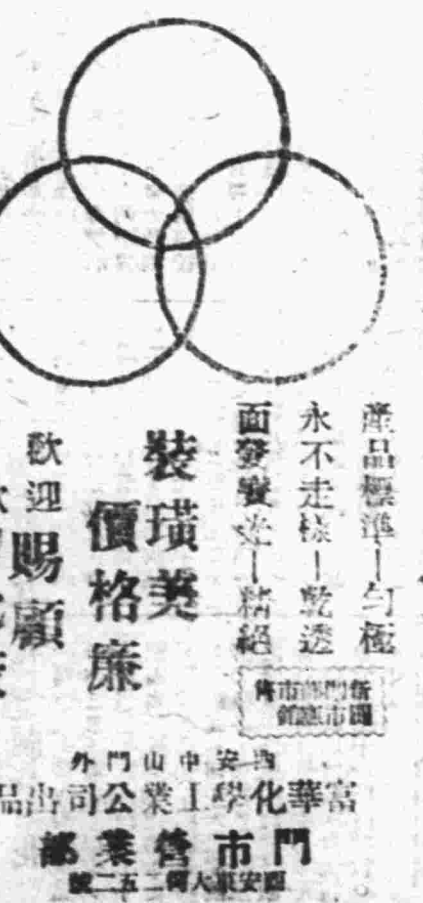 產品標準—勻極
永不走樣—乾透
面發發光—精絕
裝璜美
價格廉
歡迎賜顧
西安中山門外
富華化學工業公司出品
門市營業部
西安東大街二五二號